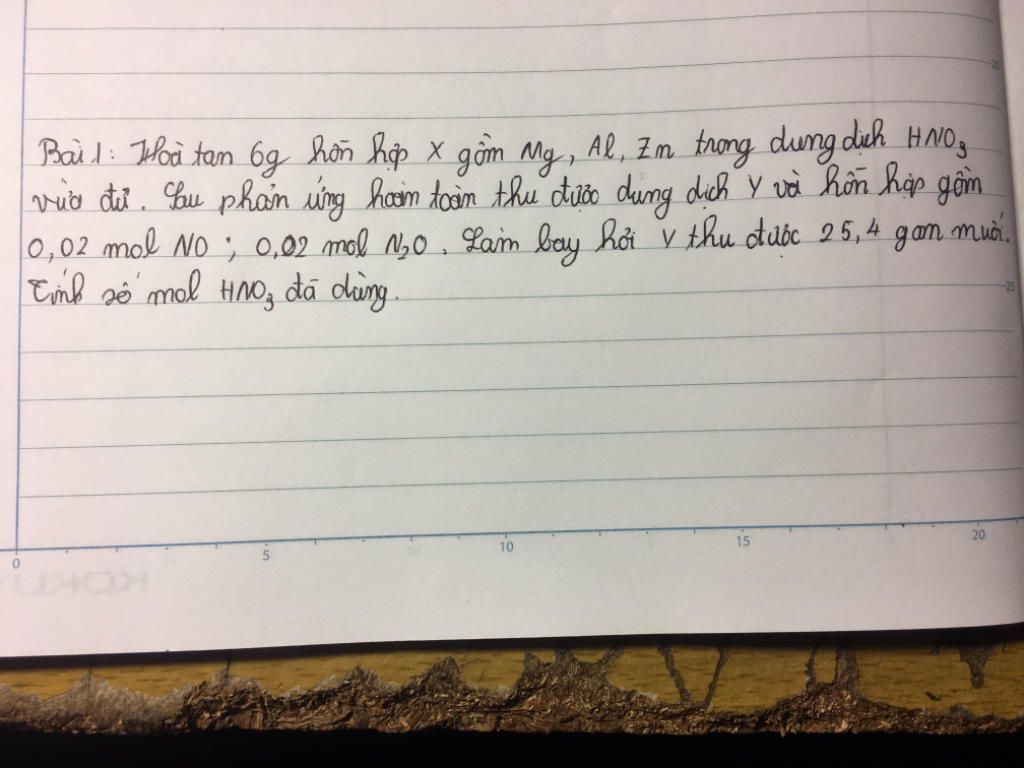 Bài 1: Hoà tan 6g hỗn hợp X gồm Mg, Al, Zn trong dung dịch HNO₃
vừa đủ. Sau phản ứng hoàn toàn thu được dung dịch Y và hỗn hợp gồm
0,02 mol NO ; 0,02 mol N₂O . Làm bay hơi Y thu được 25,4 gam muối.
Tính số mol HNO₃ đã dùng.
25
0 5 10 15 20